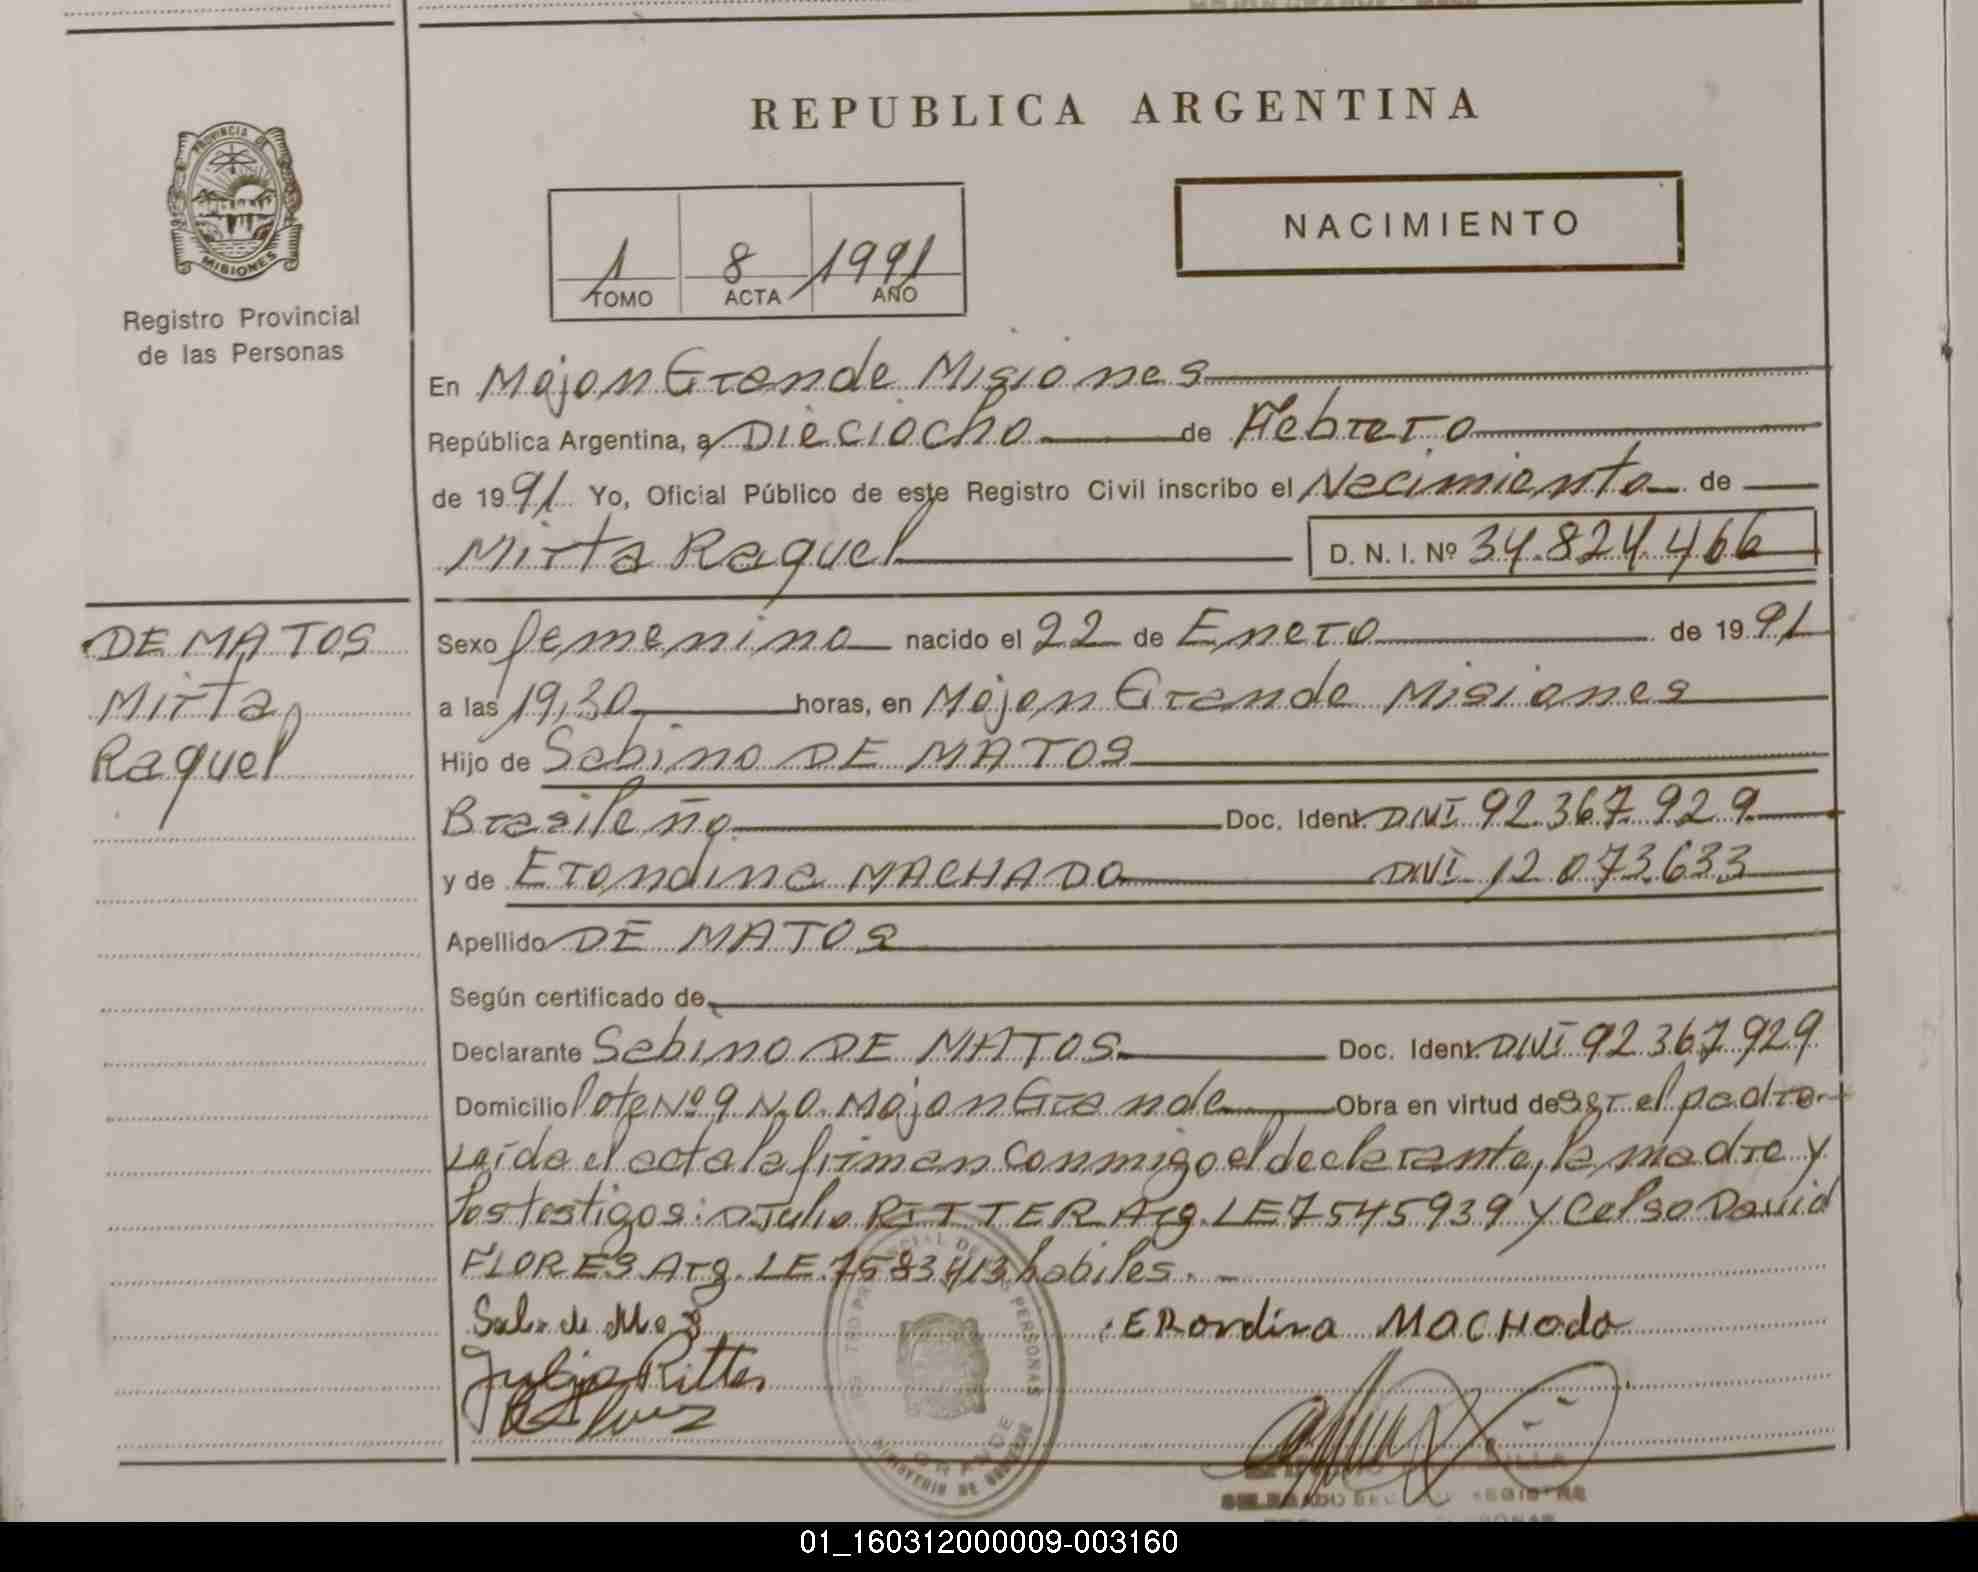 REPUBLICA ARGENTINA
PROVINCIA DE
MISIONES
Registro Provincial
de las Personas
NACIMIENTO
1 8 1991
TOMO ACTA AÑO
En Mojon Grande Misiones
República Argentina, a Dieciocho de Febrero
de 1991 Yo, Oficial Público de este Registro Civil inscribo el Nacimiento de
Mirta Raquel D. N. I. Nº 34.824.466
DE MATOS
Mirta
Raquel
Sexo femenino nacido el 22 de Enero de 1991
a las 19,30 horas, en Mojon Grande Misiones
Hijo de Sabino DE MATOS
Brasileño Doc. Ident. DNI 92.367.929
y de Erondina MACHADO DNI 12.073.633
Apellido DE MATOS
Según certificado de
Declarante Sabino DE MATOS Doc. Ident. DNI 92.367.929
Domicilio lote Nº 9 N.O. Mojon Grande Obra en virtud de ser el padre
Leída el acta la firman conmigo el declarante, la madre y
los testigos: D Julio RITTER Arg. LE 7545939 y Celso David
FLORES Arg. LE 7583413 habiles. -
ERondina MACHado
Julio Ritter
PERSONAS
GRANDE
MINISTERIO DE GOBIERNO
01_160312000009-003160